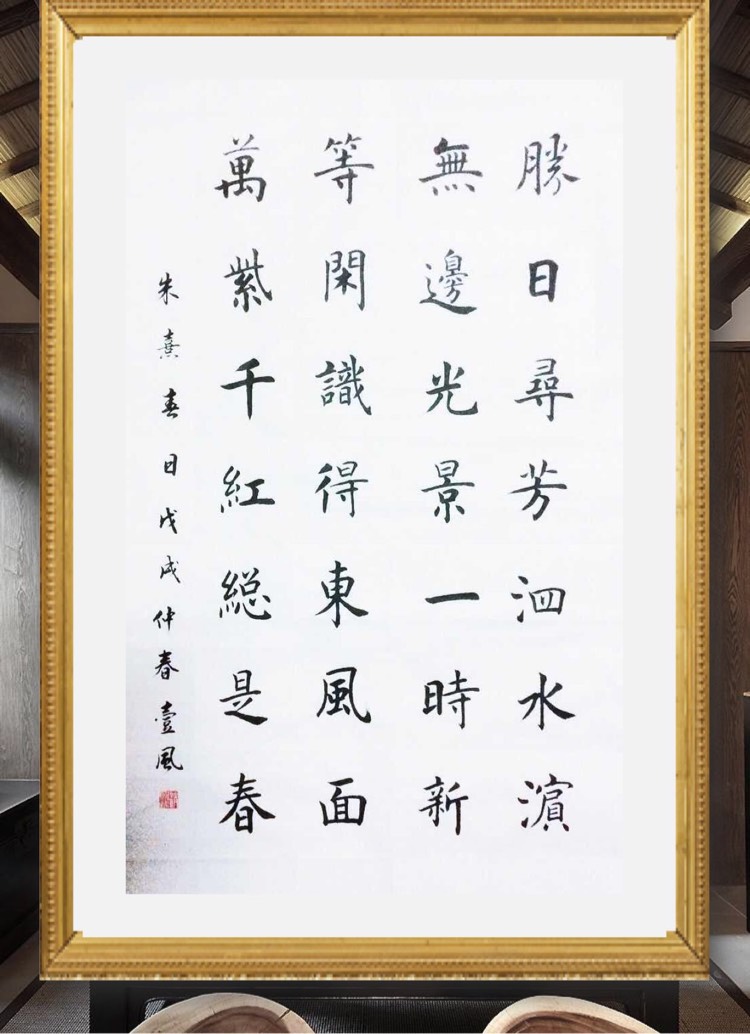 勝日尋芳泗水濵
無邊光景一時新
等閑識得東風面
萬紫千紅総是春
朱熹春日戊戌仲春壹風